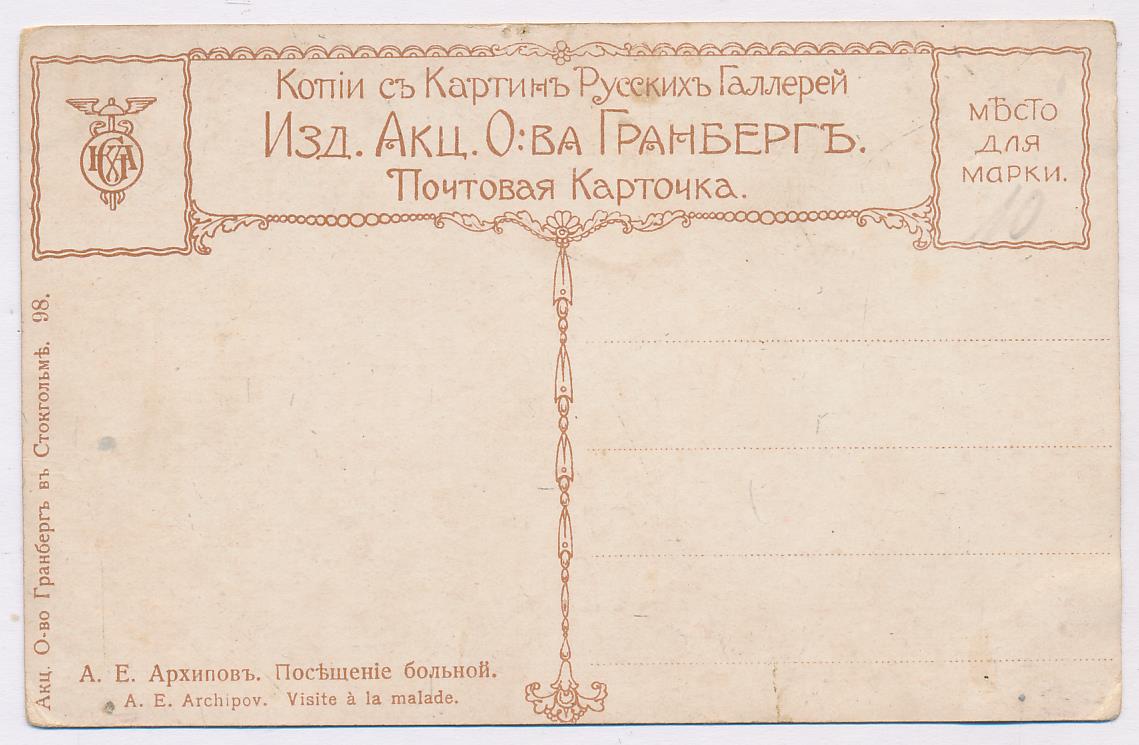 Копіи съ Картинъ Русскихъ Галлерей
Изд. Акц. О:ва Гранбергъ.
Почтовая Карточка.
мѣсто
для
марки.
10
Акц. О-во Гранбергъ въ Стокгольмѣ. 98.
А. Е. Архиповъ. Посѣщеніе больной.
A. E. Archipov. Visite à la malade.